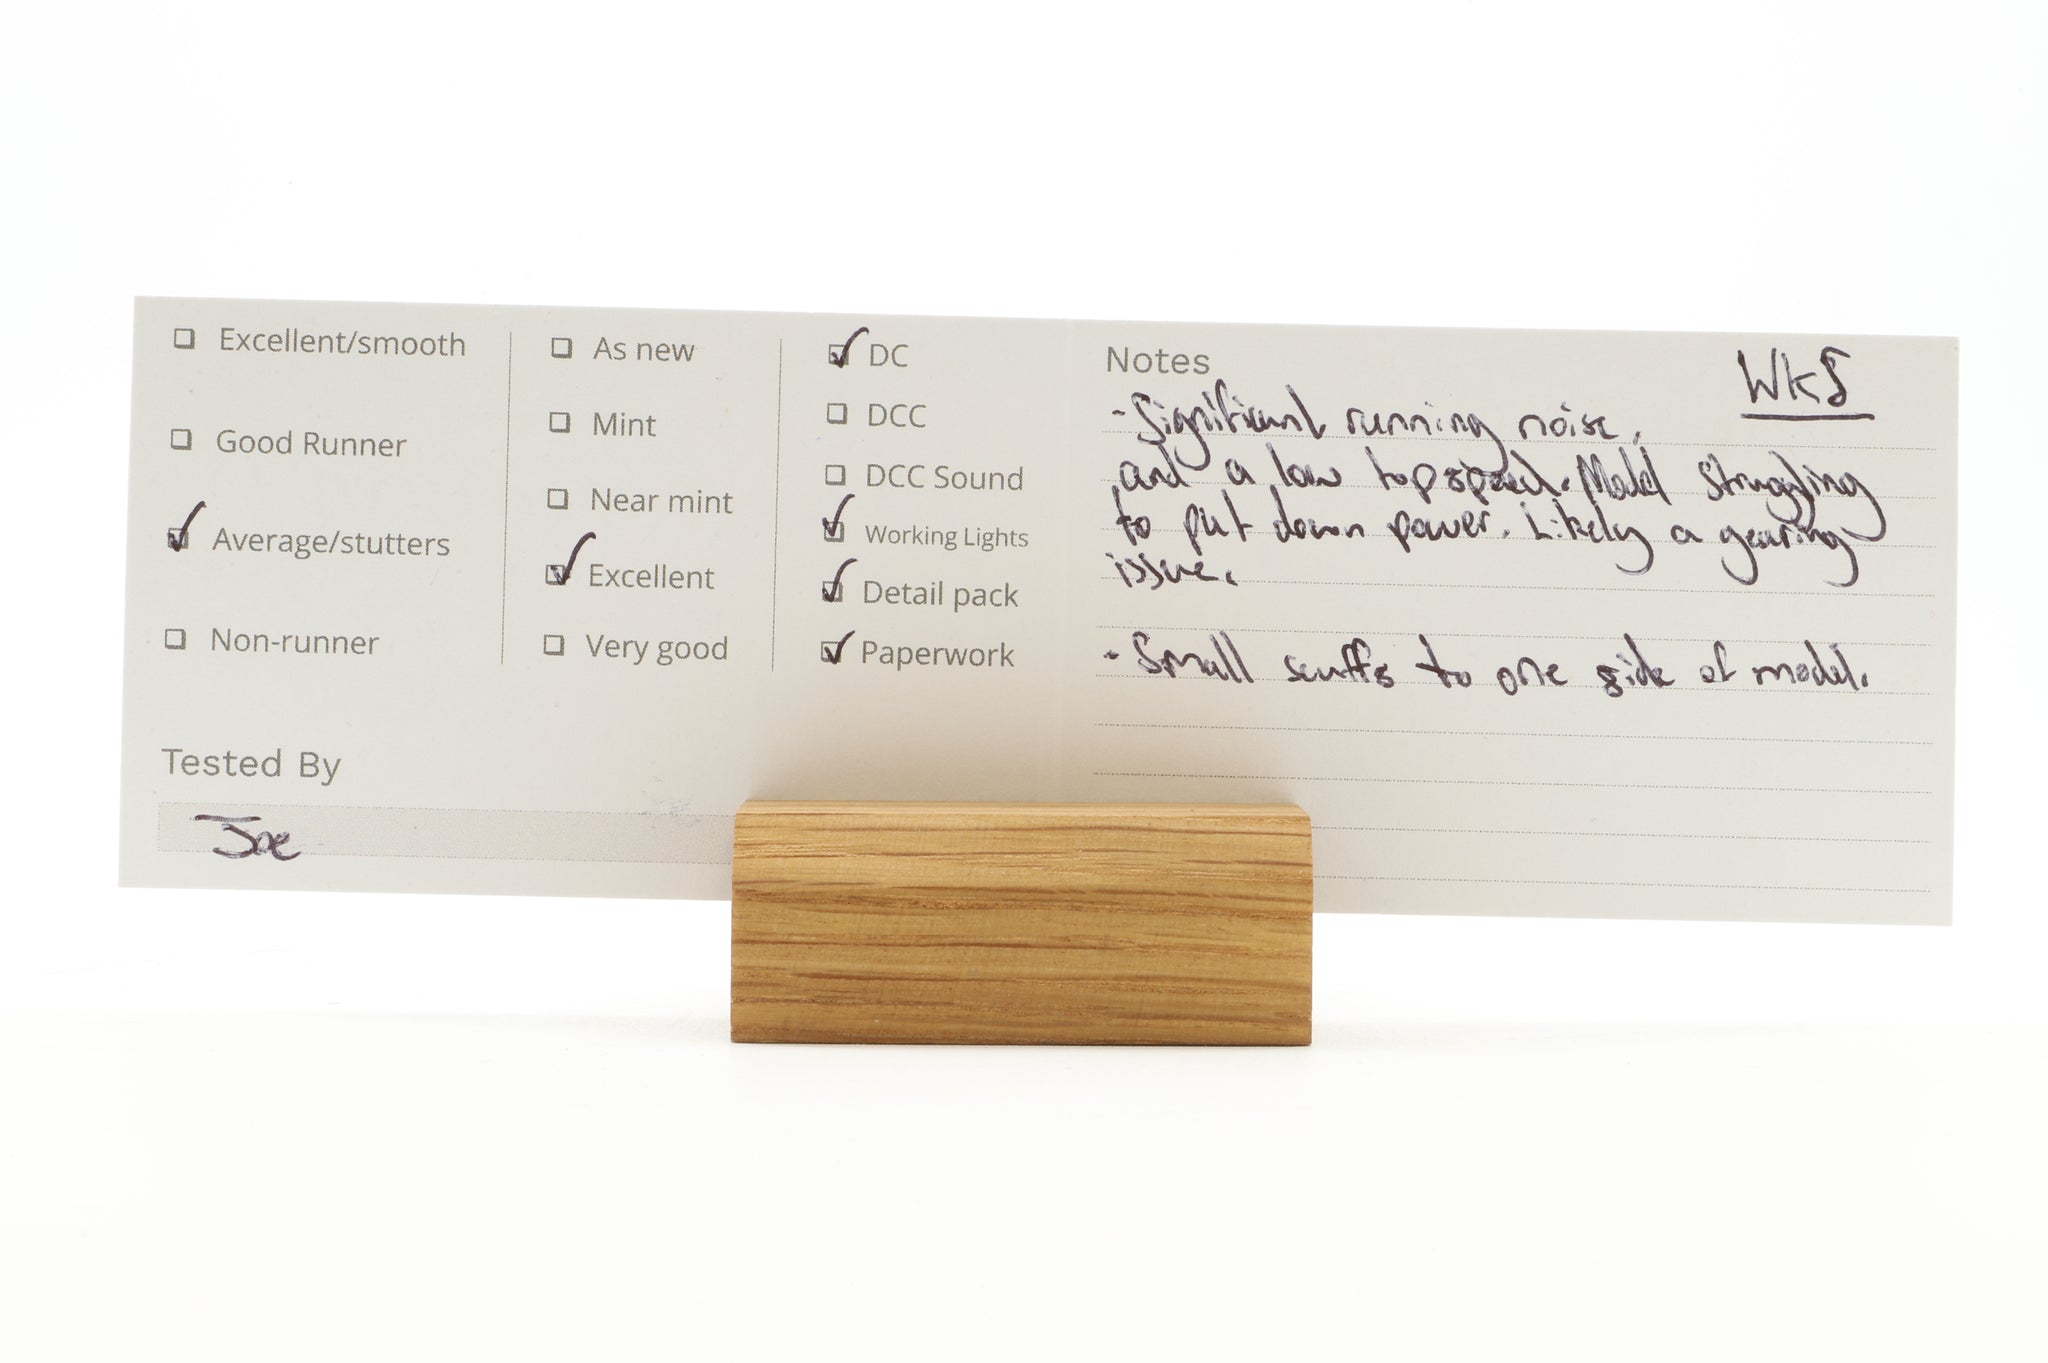 Excellent/smooth
Good Runner
Average/stutters
Non-runner
As new
Mint
Near mint
Excellent
Very good
DC
DCC
DCC Sound
Working Lights
Detail pack
Paperwork
Tested By
Joe
Notes
- Significant running noise,
and a low top speed. Model struggling
to put down power. Likely a gearing
issue.
- Small scuffs to one side of model.